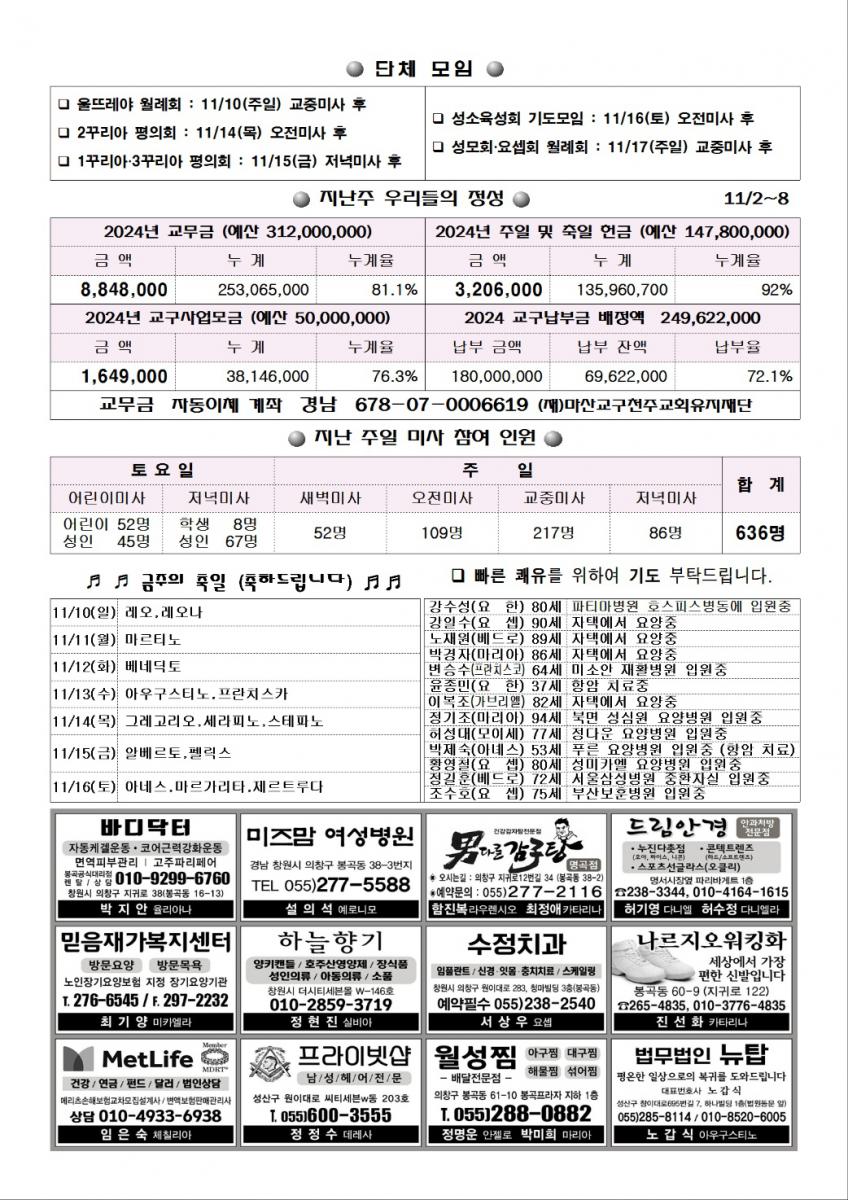 단체 모임
❏ 울뜨레야 월례회 : 11/10(주일) 교중미사 후
❏ 2꾸리아 평의회 : 11/14(목) 오전미사 후
❏ 1꾸리아·3꾸리아 평의회 : 11/15(금) 저녁미사 후
❏ 성소육성회 기도모임 : 11/16(토) 오전미사 후
❏ 성모회·요셉회 월례회 : 11/17(주일) 교중미사 후
지난주 우리들의 정성 11/2~8
2024년 교무금 (예산 312,000,000) 2024년 주일 및 축일 헌금 (예산 147,800,000)
금 액 누 계 누계율 금 액 누 계 누계율
8,848,000 253,065,000 81.1% 3,206,000 135,960,700 92%
2024년 교구사업모금 (예산 50,000,000) 2024 교구납부금 배정액 249,622,000
금 액 누 계 누계율 납부 금액 납부 잔액 납부율
1,649,000 38,146,000 76.3% 180,000,000 69,622,000 72.1%
교무금 자동이체 계좌 경남 678-07-0006619 (재)마산교구천주교회유지재단
지난 주일 미사 참여 인원
토요일 주 일 합 계
어린이미사 저녁미사 새벽미사 오전미사 교중미사 저녁미사
어린이 52명 학생 8명 52명 109명 217명 86명 636명
성인 45명 성인 67명
♬ ♬ 금주의 축일 (축하드립니다) ♬ ♬
11/10(일) 레오,레오나
11/11(월) 마르티노
11/12(화) 베네딕토
11/13(수) 아우구스티노.프란치스카
11/14(목) 그레고리오,세라피노,스테파노
11/15(금) 알베르토,펠릭스
11/16(토) 아녜스.마르가리타.제르트루다
❏ 빠른 쾌유를 위하여 기도 부탁드립니다.
강수성(요 한) 80세 파티마병원 호스피스병동에 입원중
강일수(요 셉) 90세 자택에서 요양중
노재원(베드로) 89세 자택에서 요양중
박경자(마리아) 86세 자택에서 요양중
변승수(프란치스코) 64세 미소안 재활병원 입원중
윤종민(요 한) 37세 항암 치료중
이복조(가브리엘) 82세 자택에서 요양중
정기조(마리아) 94세 북면 성심원 요양병원 입원중
허성대(모이세) 77세 정다운 요양병원 입원중
박제숙(아녜스) 53세 푸른 요양병원 입원중 (항암 치료)
황영철(요 셉) 80세 성미카엘 요양병원 입원중
정길훈(베드로) 72세 서울삼성병원 중환자실 입원중
조수호(요 셉) 75세 부산보훈병원 입원중
바디닥터
자동케겔운동·코어근력강화운동
면역피부관리 | 고주파리페어
봉곡공식대리점
렌탈/상담 010-9299-6760
창원시 의창구 지귀로 38(봉곡동 16-13)
박지안 율리아나
미즈맘 여성병원
경남 창원시 의창구 봉곡동 38-3번지
TEL 055)277-5588
설의석 예로니모
건강감자탕전문점
男다른감자탕 명곡점
오시는길 : 의창구 지귀로12번길 34 (봉곡동 38-2)
예약문의 : 055)277-2116
함진복 라우렌시오 최정애 카타리나
드림안경 안과처방 전문점
·누진다촛점 ·콘텍트렌즈
(호야, 짜이스, 니콘) (하드/소프트렌즈)
·스포츠선글라스(오클리)
명서시장옆 파리바게트 1층
☎238-3344, 010-4164-1615
허기영 다니엘 허수정 다니엘라
믿음재가복지센터
방문요양 방문목욕
노인장기요양보험 지정 장기요양기관
T. 276-6545 / F. 297-2232
최기양 미카엘라
하늘향기
양키캔들 / 호주산영양제 / 장식품
성인의류 / 아동의류 / 소품
창원시 더시티세븐몰 W-146호
010-2859-3719
정현진 실비아
수정치과
임플란트 / 신경·잇몸·충치치료 / 스케일링
창원시 의창구 원이대로 283, 청마빌딩 3층(봉곡동)
예약필수 055)238-2540
서상우 요셉
나르지오워킹화
세상에서 가장
편한 신발입니다
봉곡동 60-9 (지귀로 122)
☎265-4835, 010-3776-4835
진선화 카타리나
MetLife Member MDRT
건강 / 연금 / 펀드 / 달러 / 법인상담
메리츠손해보험교차모집설계사 / 변액보험판매관리사
상담 010-4933-6938
임은숙 체칠리아
프라이빗샵
남/성/헤/어/전/문
성산구 원이대로 씨티세븐w동 203호
T. 055)600-3555
정정수 데레사
월성찜 아구찜 대구찜
– 배달전문점 – 해물찜 섞어찜
의창구 봉곡동 61-10 봉곡프라자 지하 1층
T. 055)288-0882
정명운 안젤로 박미희 마리아
법무법인 뉴탑
평온한 일상으로의 복귀를 도와드립니다
대표변호사 노갑식
성산구 창이대로695번길 7, 하나빌딩 1층(법원등문 앞)
055)285-8114 / 010-8520-6005
노갑식 아우구스티노